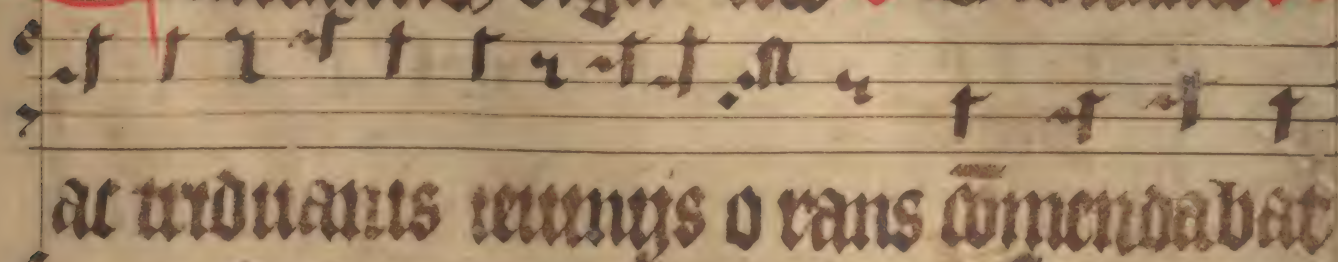 ac triduanis ieiunijs o rans com̄endabat